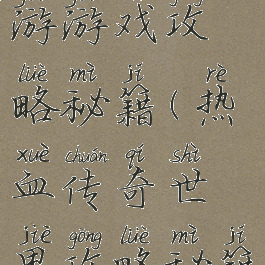 游游戏攻
lüè mì jí rè
略秘籍(热
xuè chuán qí shì
血传奇世
jiè gōng lüè mì jí
界攻略秘籍